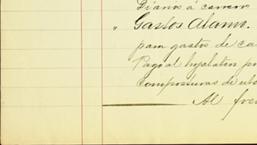 Diario á
" Carlos Alam
para gastos de ca
Pago al hojalatero po
Composturas de
Al